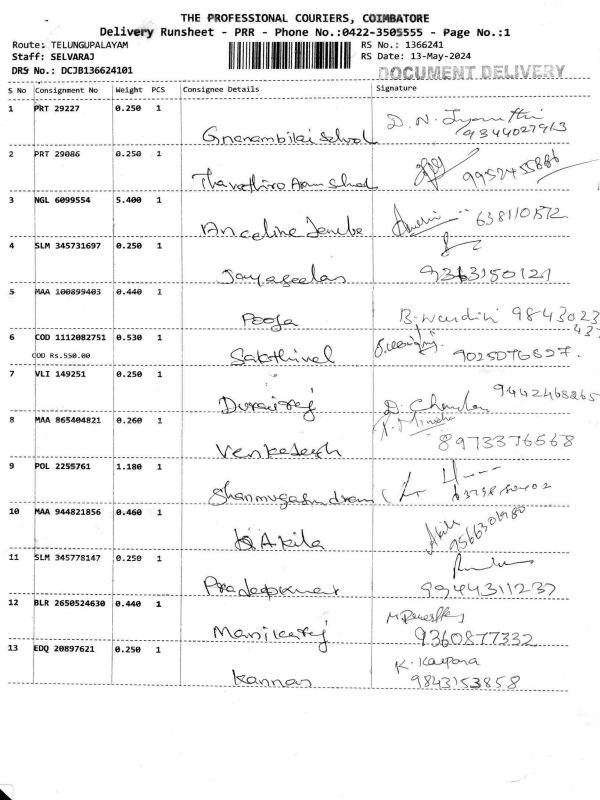 THE PROFESSIONAL COURIERS, COIMBATORE
Delivery Runsheet - PRR - Phone No.:0422-3505555 - Page No.:1
Route: TELUNGUPALAYAM RS No.: 1366241
Staff: SELVARAJ RS Date: 13-May-2024
DRS No.: DCJB136624101 DOCUMENT DELIVERY
S No Consignment No Weight PCS Consignee Details Signature
1 PRT 29227 0.250 1
D. N. 9344027913
2 PRT 29086 0.250 1
9952455886
3 NGL 6099554 5.400 1
Angeline
4 SLM 345731697 0.250 1
Jayaseelan 9363150121
5 MAA 100899403 0.440 1
Pooja B. Nandini 9843023
437
6 COD 1112082751 0.530 1
COD Rs.550.00 Sakthivel 9025076627.
7 VLI 149251 0.250 1 9442468265
Durairaj D. Chandan
8 MAA 865404821 0.260 1
Venkatesh 8973376568
9 POL 2255761 1.180 1
Shanmugasundram
10 MAA 944821856 0.460 1 Akila
Akila 9566301980
11 SLM 345778147 0.250 1
Pradeepkumar 9944311237
12 BLR 2650524630 0.440 1
Manikaraj 9360877332
13 EDQ 20897621 0.250 1 K. Kalpana
Kannan 9843153858